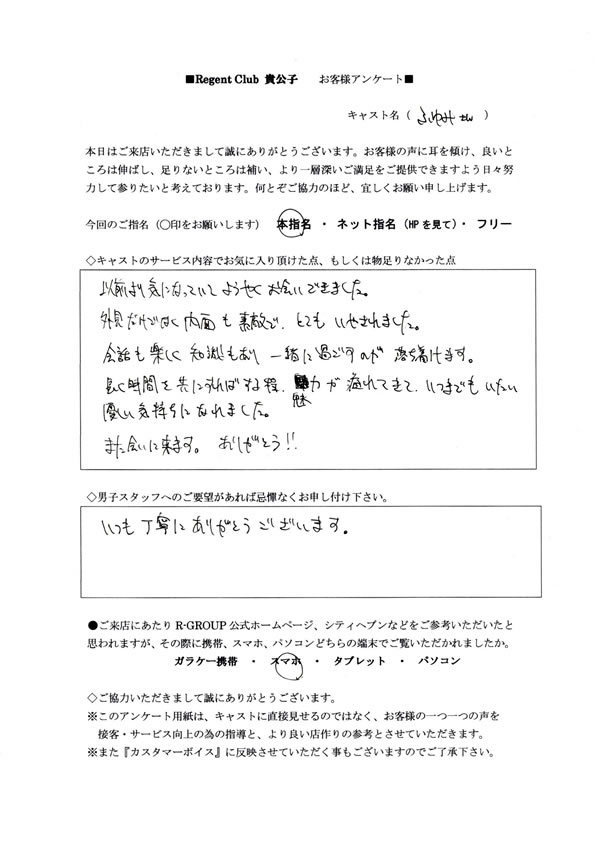 ■Regent Club 貴公子 お客様アンケート■
キャスト名（ ふゆみ さん ）
本日はご来店いただきまして誠にありがとうございます。お客様の声に耳を傾け、良いと
ころは伸ばし、足りないところは補い、より一層深いご満足をご提供できますよう日々努
力して参りたいと考えております。何とぞご協力のほど、宜しくお願い申し上げます。
今回のご指名（〇印をお願いします） 本指名 ・ ネット指名（HPを見て）・ フリー
◇キャストのサービス内容でお気に入り頂けた点、もしくは物足りなかった点
以前より気になっていてようやくお会いできました。
外見だけではなく内面も素敵で、とてもいやされました。
会話も楽しく知識もあり一緒に過ごすのが落ち着けます。
長く時間を共にすればする程、魅力が溢れてきて、いつまでもいたい
優しい気持ちになれました。
また会いに来ます。ありがとう!!
◇男子スタッフへのご要望があれば忌憚なくお申し付け下さい。
いつも丁寧にありがとうございます。
●ご来店にあたり R-GROUP 公式ホームページ、シティヘブンなどをご参考いただいたと
思われますが、その際に携帯、スマホ、パソコンどちらの端末でご覧いただかれましたか。
ガラケー携帯 ・ スマホ ・ タブレット ・ パソコン
◇ご協力いただきまして誠にありがとうございます。
※このアンケート用紙は、キャストに直接見せるのではなく、お客様の一つ一つの声を
接客・サービス向上の為の指導と、より良い店作りの参考とさせていただきます。
※また『カスタマーボイス』に反映させていただく事もございますのでご了承下さい。